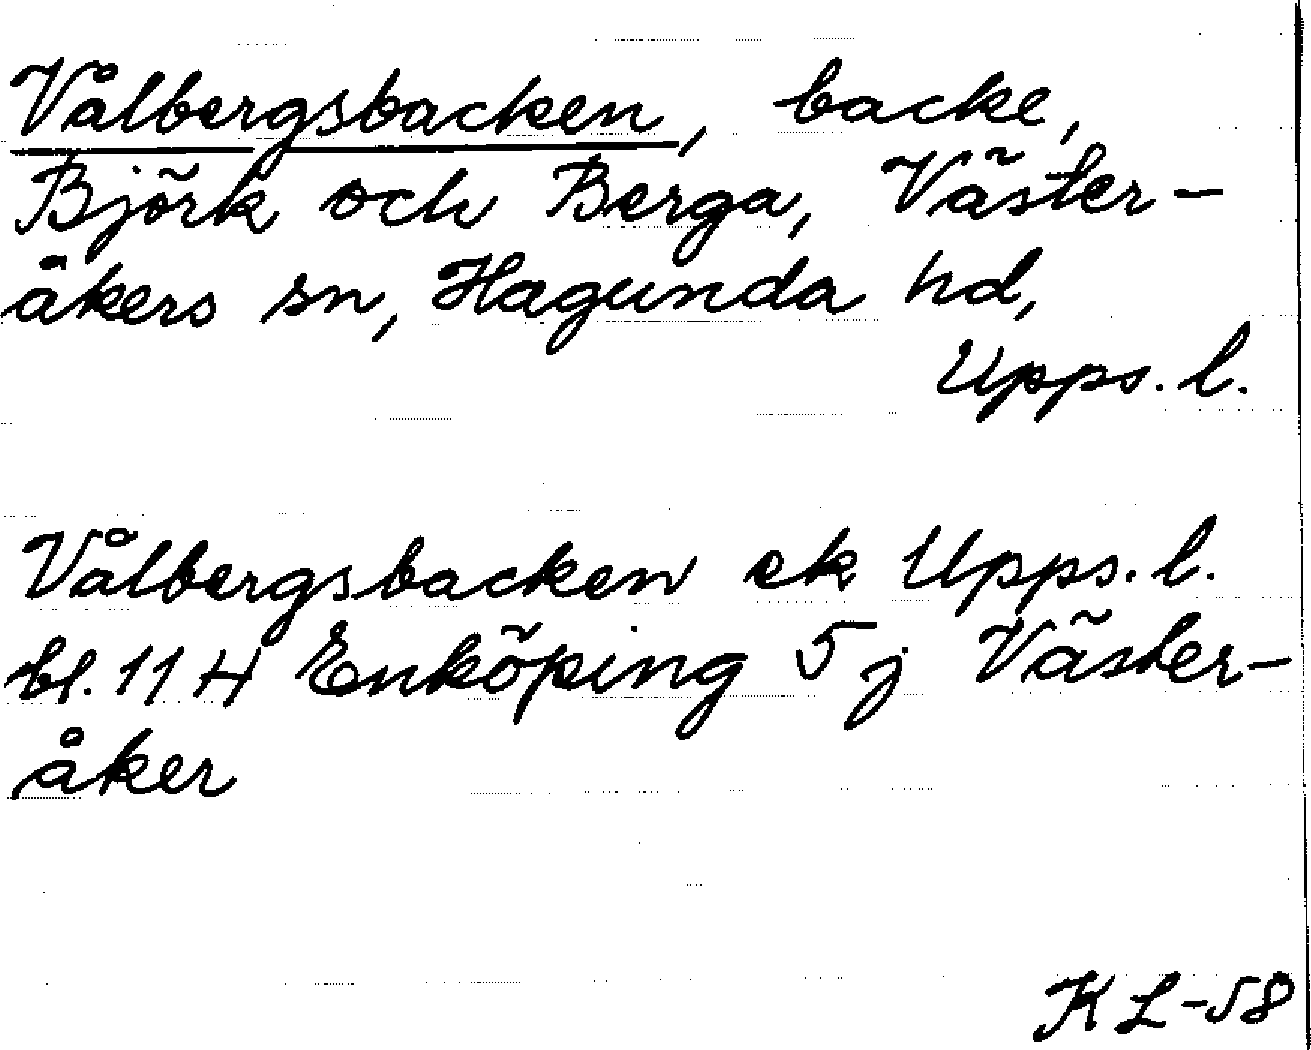 Vålbergsbacken, backe,
Björk och Berga, Väster-
åkers sn, Hagunda hd,
Upps. l.
Vålbergsbacken ek Upps. l.
bl. 11 H Enköping 5 j Väster-
åker
KL-58